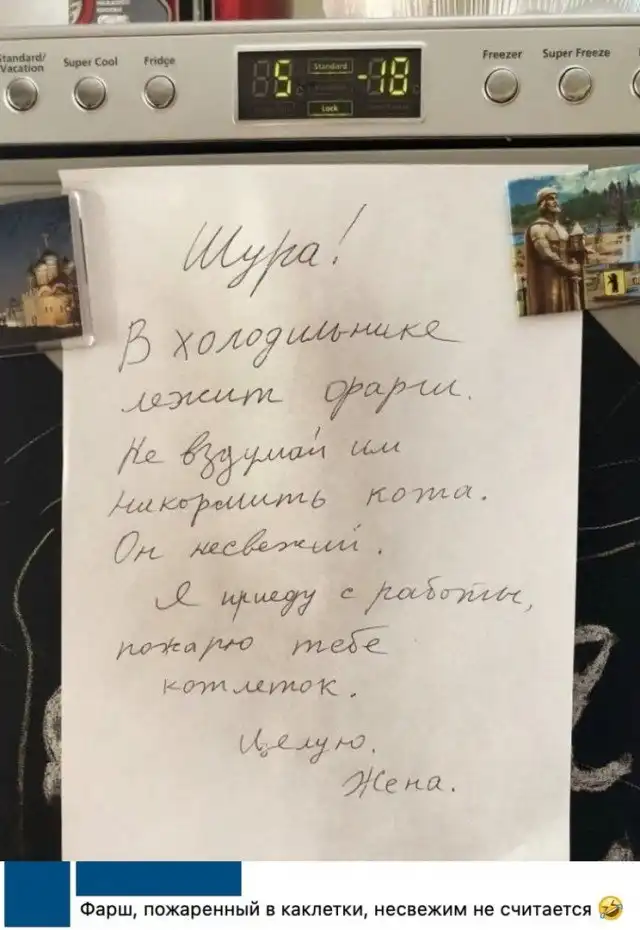 Standard/
Vacation
Super Cool
Fridge
5
Standard
-18
Lock
Freezer
Super Freeze
Шура!
В холодильнике
лежит фарш.
Не вздумай им
накормить кота.
Он несвежий.
Я приеду с работы,
пожарю тебе
котлеток.
Целую.
Жена.
Фарш, пожаренный в каклетки, несвежим не считается 🤣